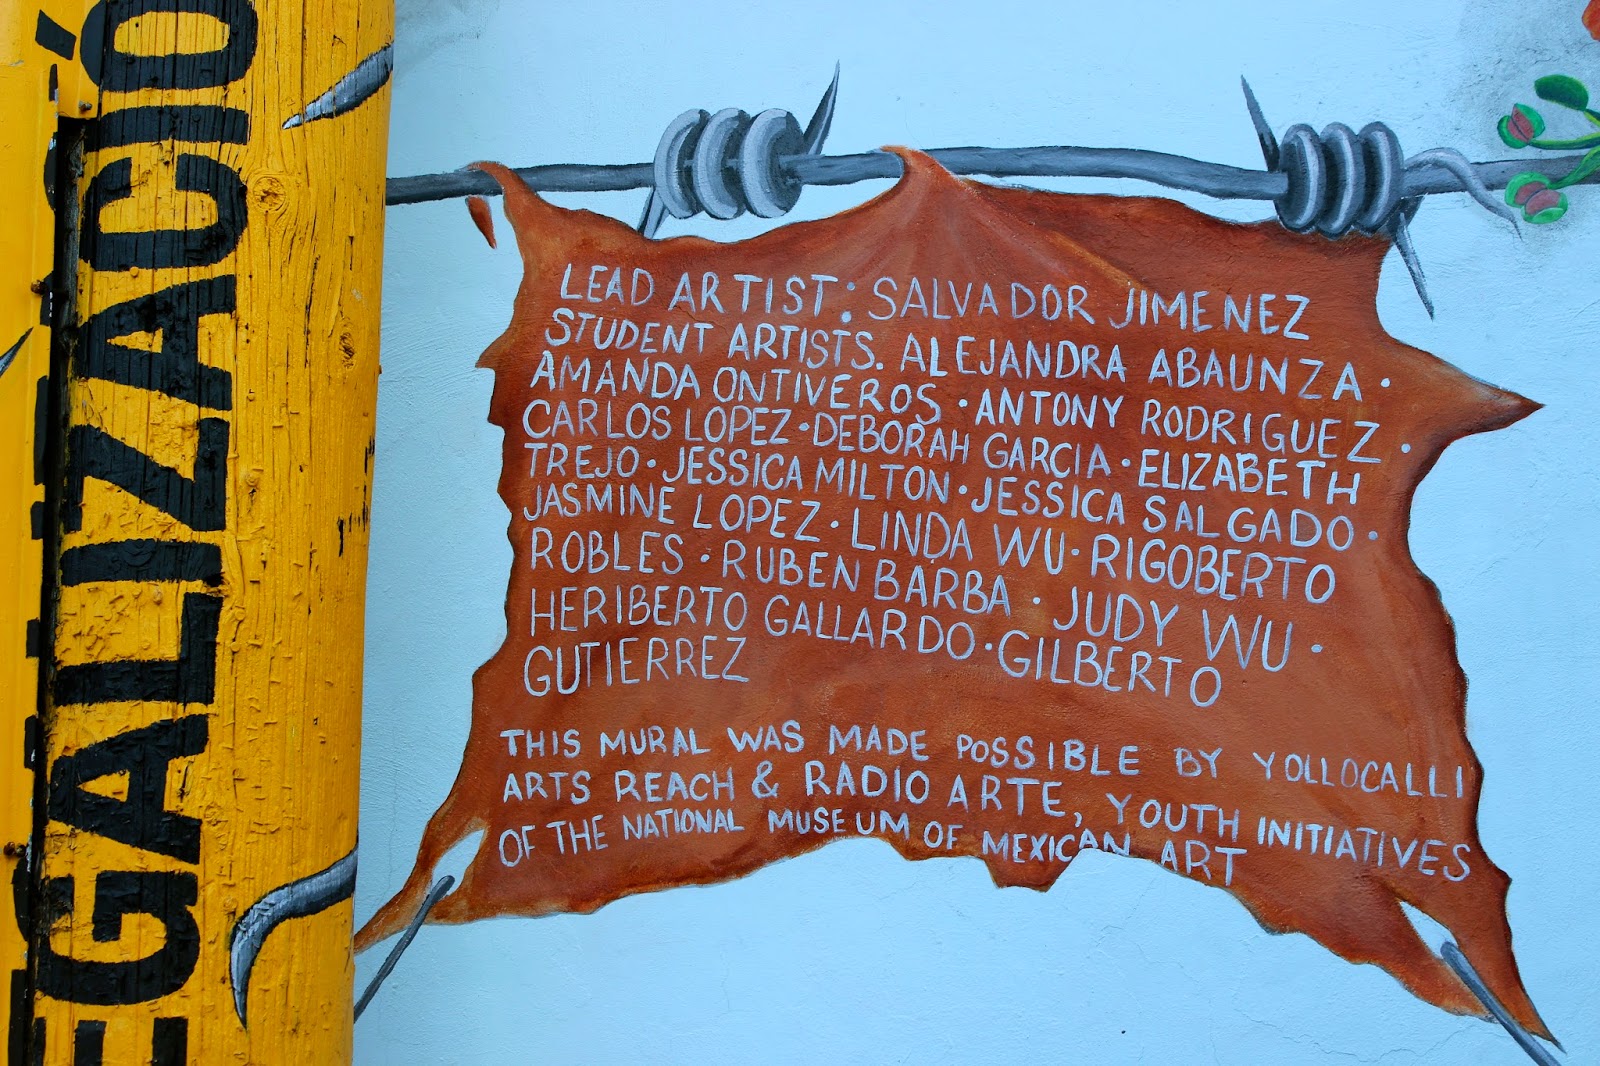 EGALIZACIÓ
LEAD ARTIST: SALVADOR JIMENEZ
STUDENT ARTISTS. ALEJANDRA ABAUNZA •
AMANDA ONTIVEROS • ANTONY RODRIGUEZ •
CARLOS LOPEZ • DEBORAH GARCIA • ELIZABETH
TREJO • JESSICA MILTON • JESSICA SALGADO •
JASMINE LOPEZ • LINDA WU • RIGOBERTO
ROBLES • RUBEN BARBA • JUDY WU •
HERIBERTO GALLARDO • GILBERTO
GUTIERREZ
THIS MURAL WAS MADE POSSIBLE BY YOLLOCALLI
ARTS REACH & RADIO ARTE, YOUTH INITIATIVES
OF THE NATIONAL MUSEUM OF MEXICAN ART